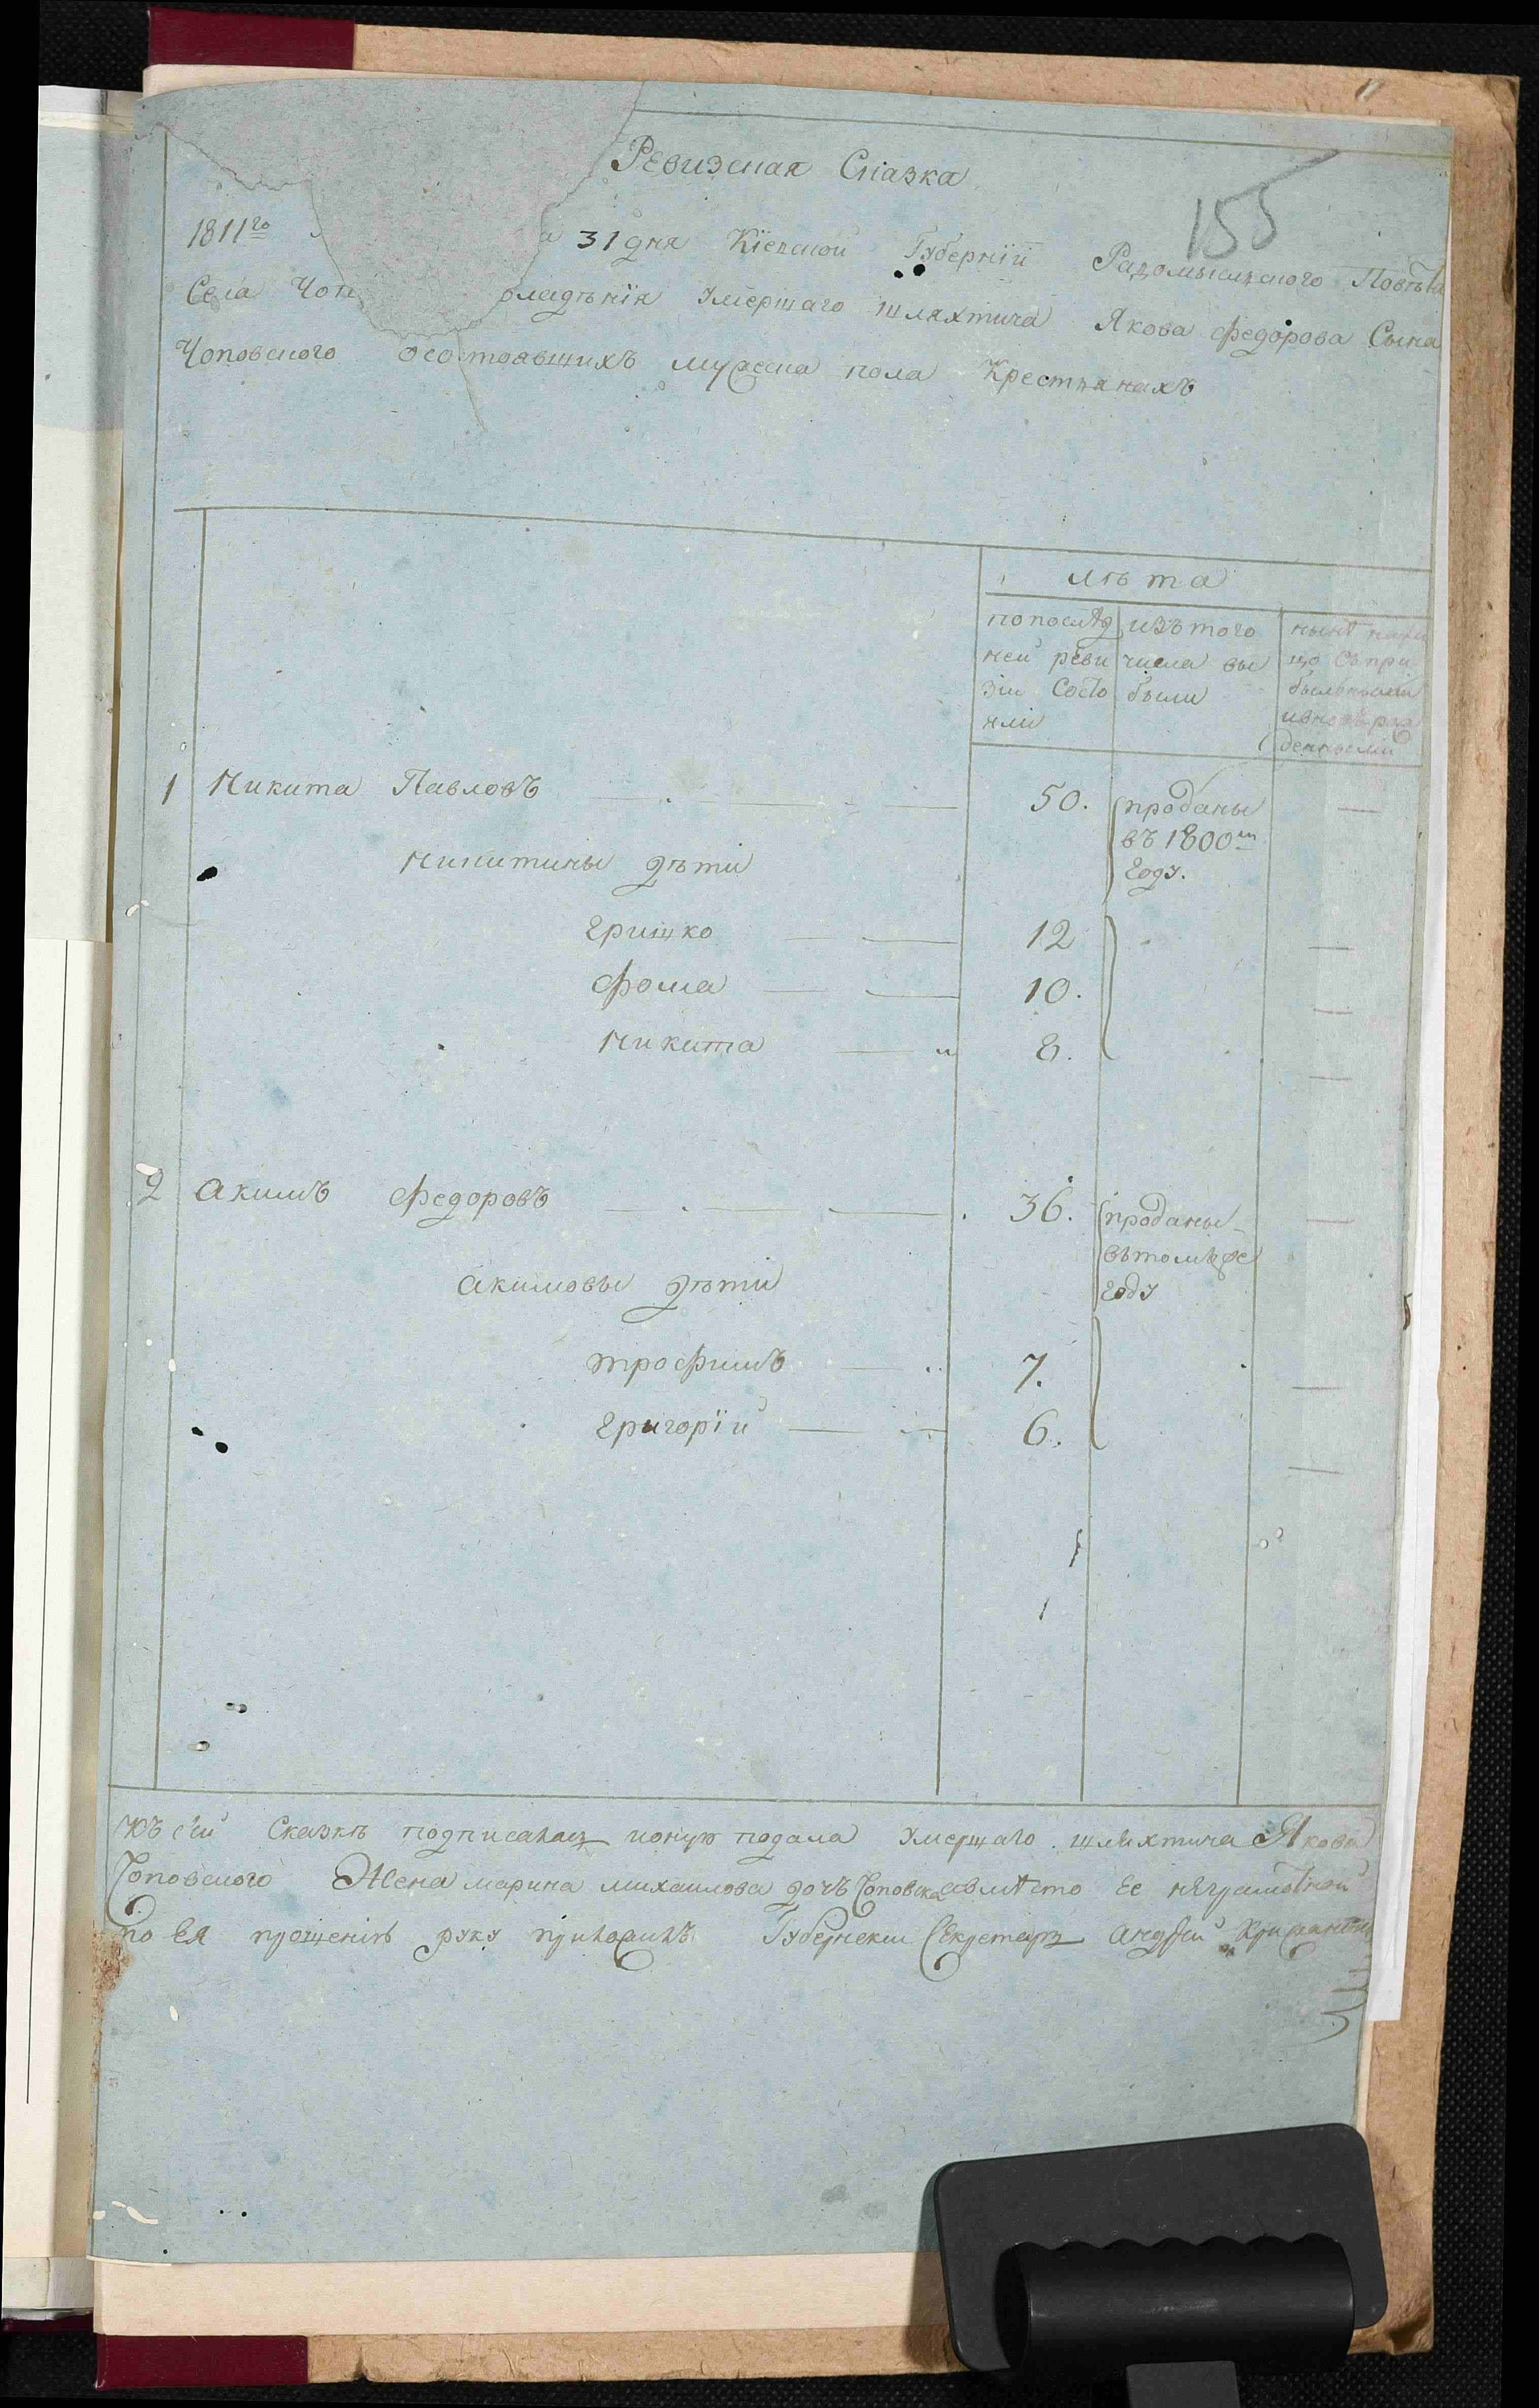 Ревизская Сказка
155
1811го а 31 дня Кїевской Губернїй Радомысльского Повѣта
Села Чоп владѣнїя Умершаго шляхтича Якова Федорова Сына
Чоповского осостоявщихъ мужеска пола Крестьянахъ
лѣта
попослѣд изъ того нынѣ
ней реви числа вы съ при
зіи Состо были былыми
яли ивновь рож
денными
1 Никита Павловъ 50. проданы
въ 1800м
Никитины дѣти году.
Гришко 12
Фома 10.
Никита 8.
2 Акимъ Федоровъ 36. проданы
вътомъже
Акимовы дѣти году
трофимъ 7.
Григорїй 6.
Къ сей Сказкѣ подписалась ионую подала Умершаго шляхтича Якова
Чоповского Жена марина михаилова дочъ Чоповска авмѣсто Ее неграмотной
по Ея прошенію руку приложилъ Губернски Секретарь Андрей